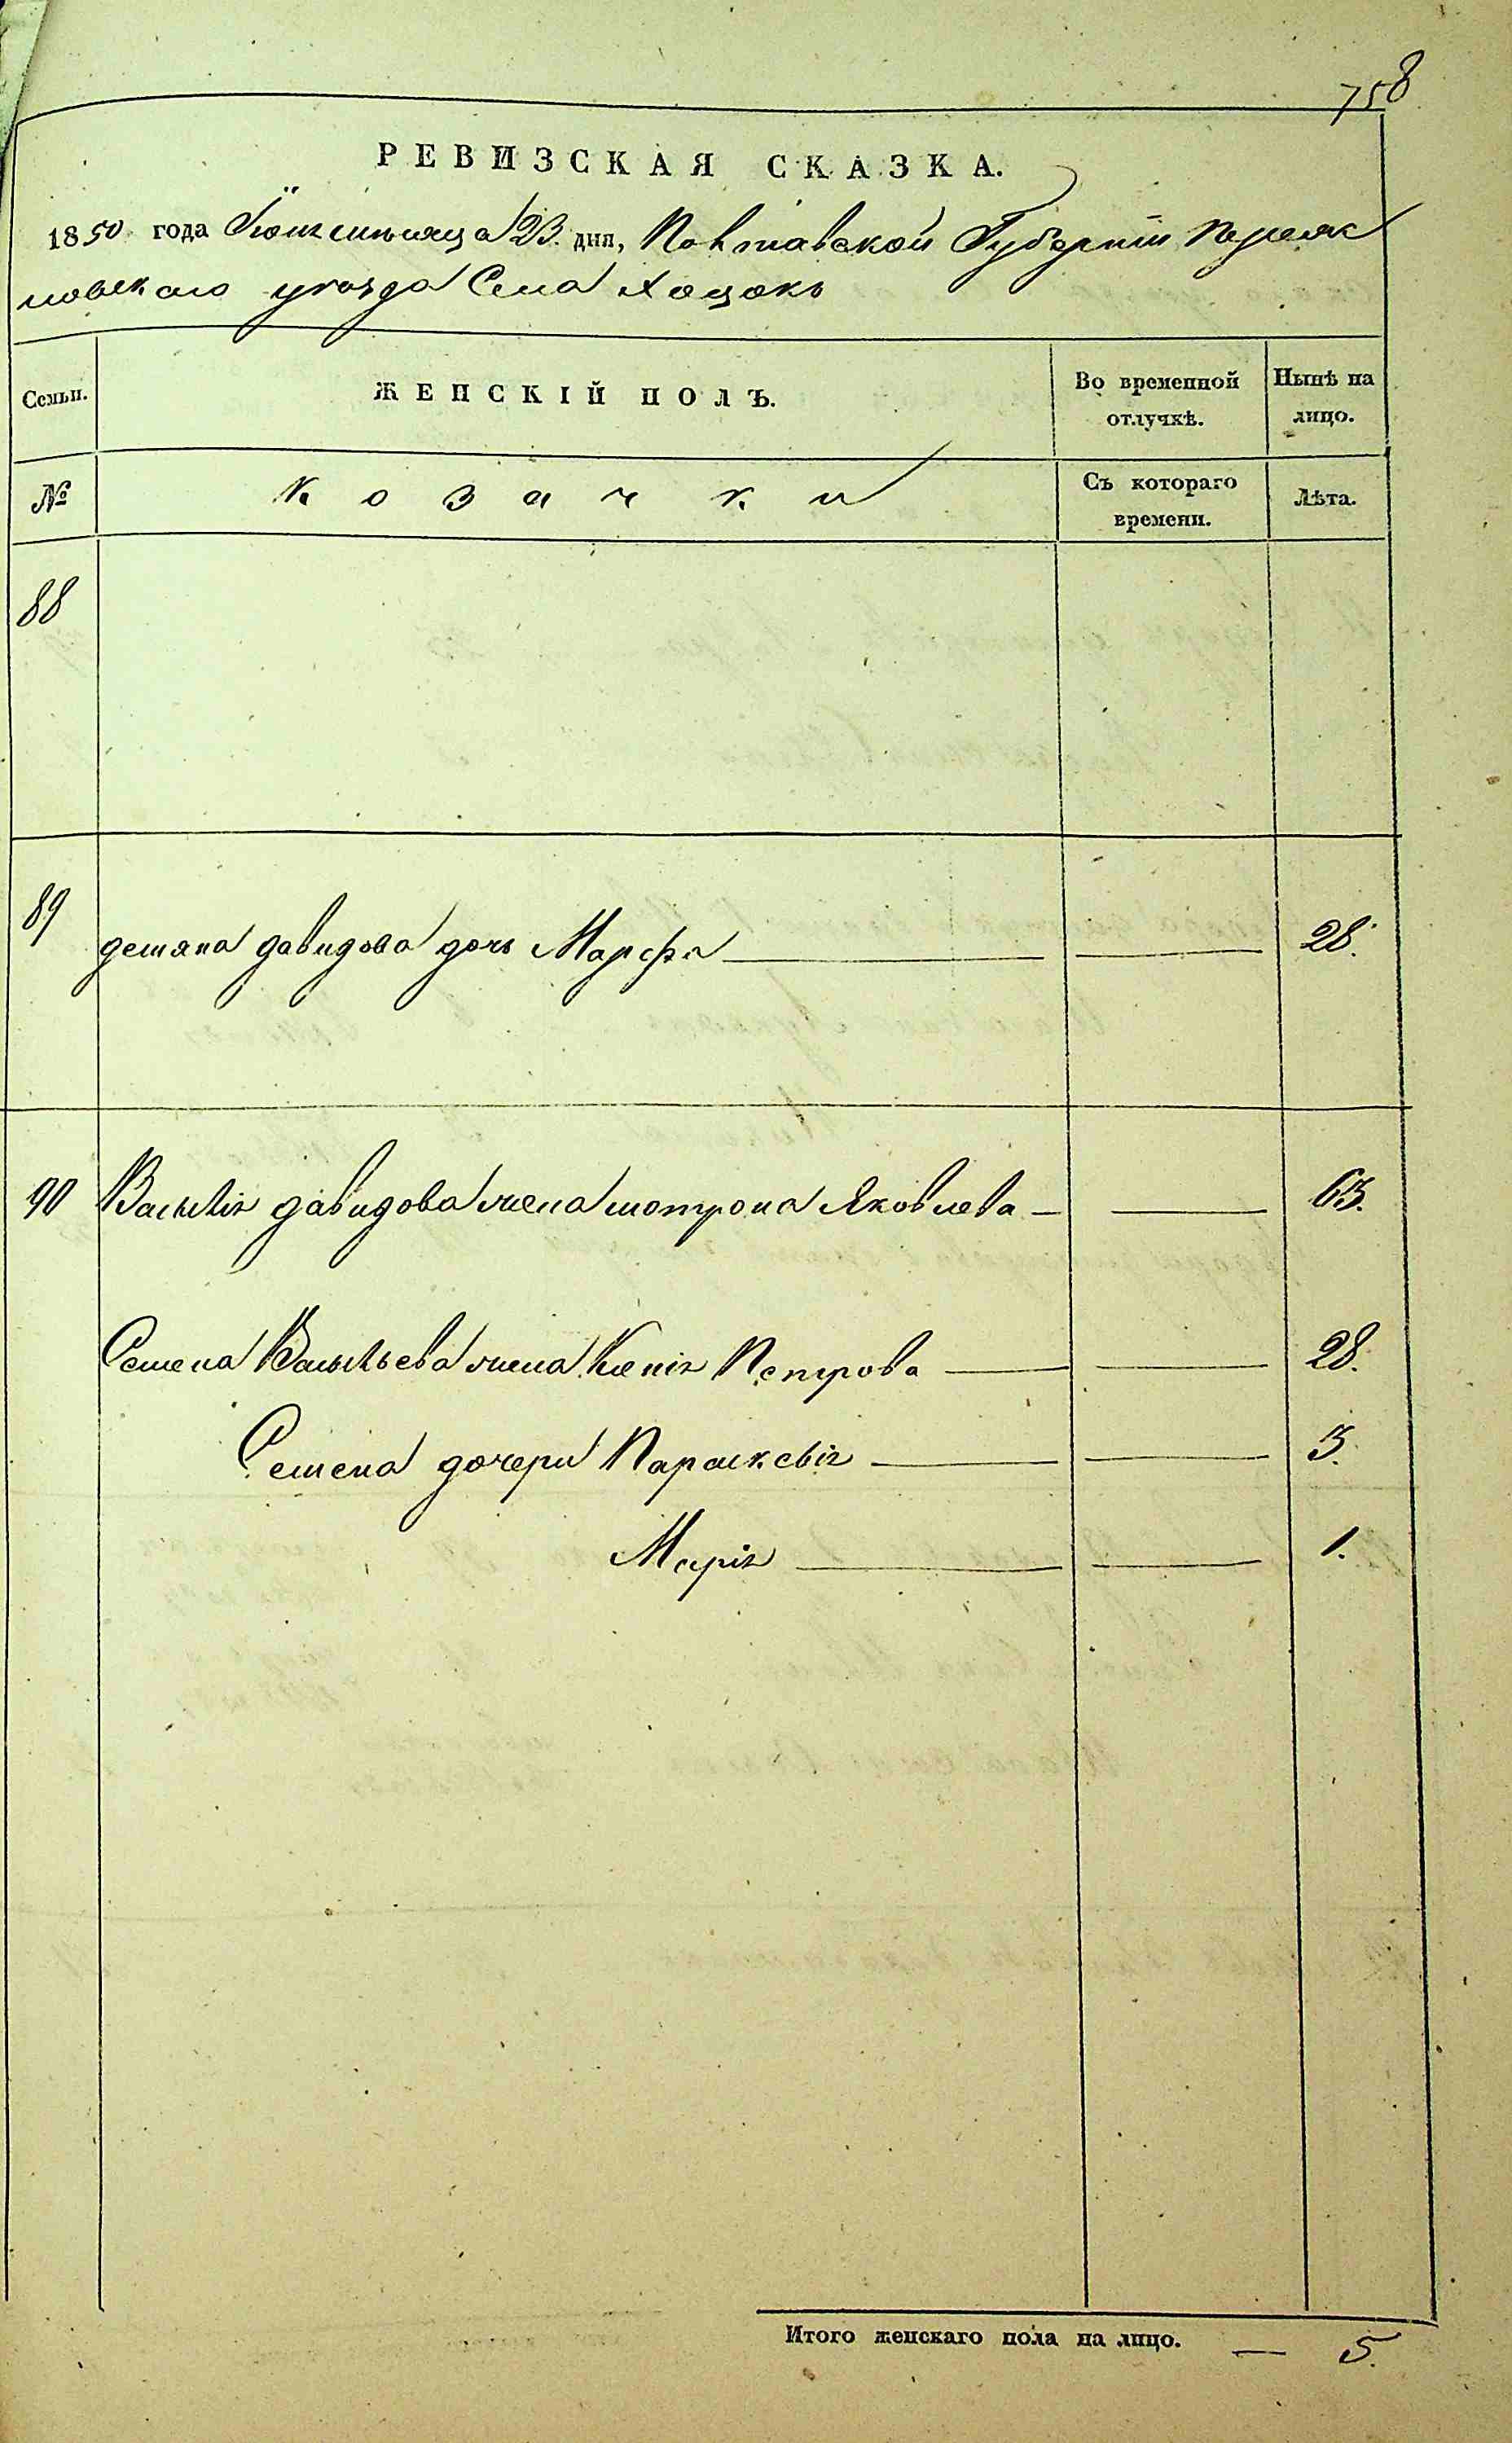 758
РЕВИЗСКАЯ СКАЗКА.
1850 года 23. дня, Полтавской Губернiи Переяс
ловского уезда Села Хоцокъ
Семьи.
ЖЕНСКІЙ ПОЛЪ.
Во временной отлучкѣ.
Нынѣ на лицо.
№
Козачки
Съ котораго времени.
Лѣта.
88
89
демяна давидова дочь Марфа 28.
90 Василiя давидова жена мотрона Яковлева 63.
Семена Васильева жена Ксенiя Петрова 28.
Семена дочери Параскевiя 3.
Марiя 1.
Итого женскаго пола на лицо. — 5.